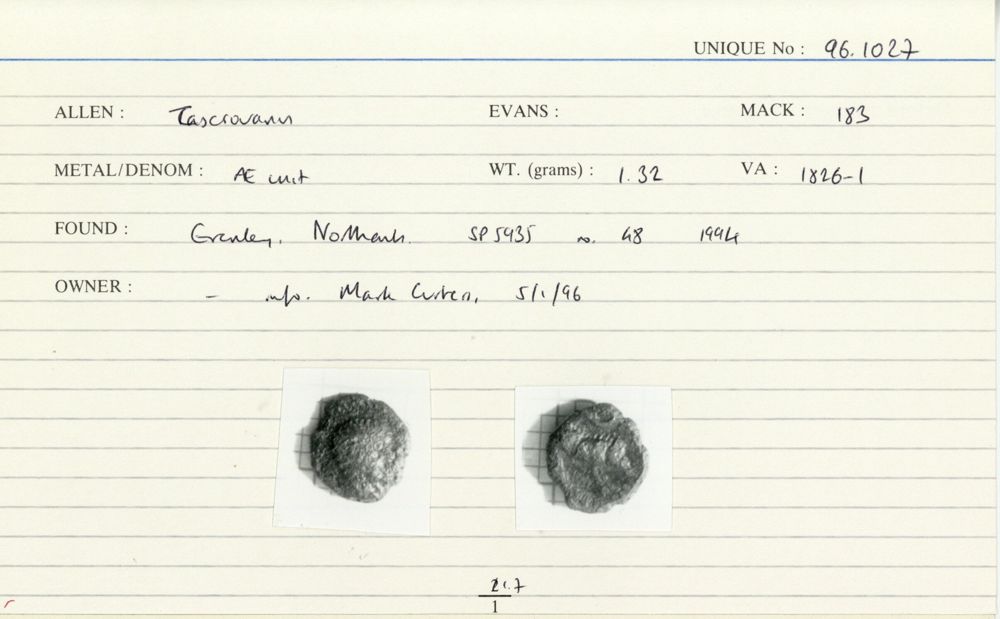 UNIQUE No : 96.1027
ALLEN : Tasciovanus EVANS : MACK : 183
METAL/DENOM : AE unit WT. (grams) : 1.32 VA : 1826-1
FOUND : Northants. SP 5935 no. 48 1994
OWNER : – info. Mark Curteis, 5/1/96
1